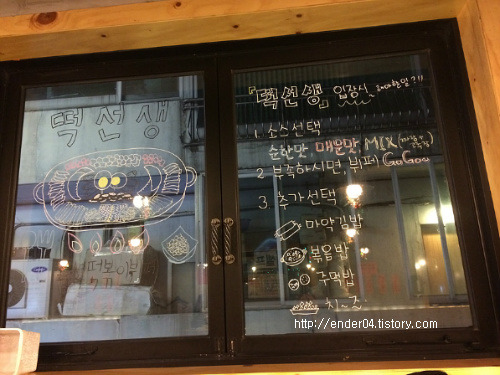 떡선생
『떡선생』 입장시 해야할일?!!
1. 소스선택
순한맛, 매운맛, MIX
2. 부족하시면, 뷔페 GoGo
3. 추가선택
마약김밥
볶음밥
주먹밥
치즈
http://ender04.tistory.com